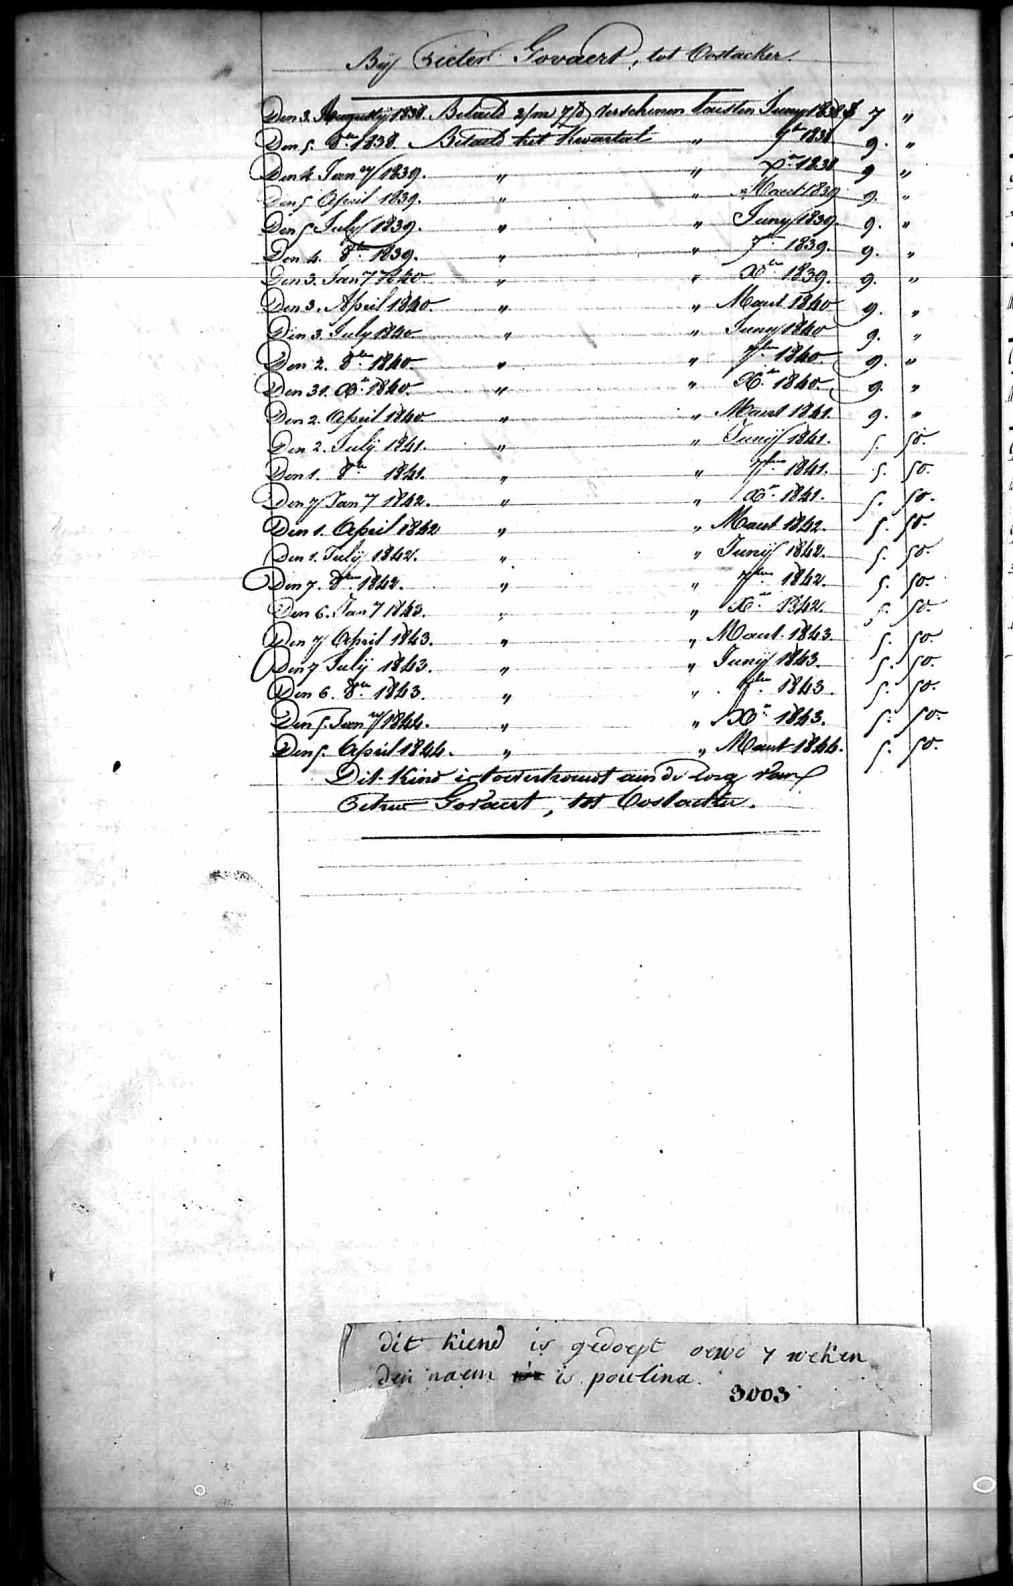 Bij Pieter Govaert, tot Oostacker.
Den 3. Augustij 1838. Betaeld 2/m 7/d verschenen laesten Junij 1838 f 7 "
Den 5. 8bre 1838. Betaeld het Kwartael " 7bre 1838 9. "
Den 4 Jan.y 1839. " " Xbre 1838 9 "
Den 5 April 1839. " " Maert 1839 9. "
Den 5 July 1839. " " Juny 1839. 9. "
Den 4. 8bre 1839. " " 7bre 1839. 9. "
Den 3. Jan.y 1840. " " Xbre 1839. 9. "
Den 3. April 1840. " " Maert 1840 9. "
Den 3. July 1840 " " Juny 1840 9. "
Den 2. 8bre 1840. " " 7bre 1840 9. "
Den 31. Xbre 1840. " " Xbre 1840. 9. "
Den 2. April 1840 " " Maert 1841. 9. "
Den 2. Julij 1841. " " Junij 1841. 5. 50.
Den 1. 8bre 1841. " " 7bre 1841. 5. 50.
Den 7 Jan.y 1842. " " Xbre 1841. 5. 50.
Den 1. April 1842 " " Maert 1842. 5. 50.
Den 1. Julij 1842. " " Junij 1842. 5. 50.
Den 7. 8bre 1842. " " 7bre 1842. 5. 50.
Den 6. Jan.y 1843. " " Xbre 1842. 5. 50.
Den 7 April 1843. " " Maert 1843 5. 50.
Den 7 Julij 1843. " " Junij 1843. 5. 50.
Den 6. 8bre 1843. " " 7bre 1843. 5. 50.
Den 5. Jan.y 1844. " " Xbre 1843. 5. 50.
Den 5. April 1844. " " Maert 1844. 5. 50.
Dit kind is toevertrouwt aen de zorg van
Petrus Govaert, tot Oostacker.
dit kiend is gedoept oewd 7 weken
den naem is poulina.
3003